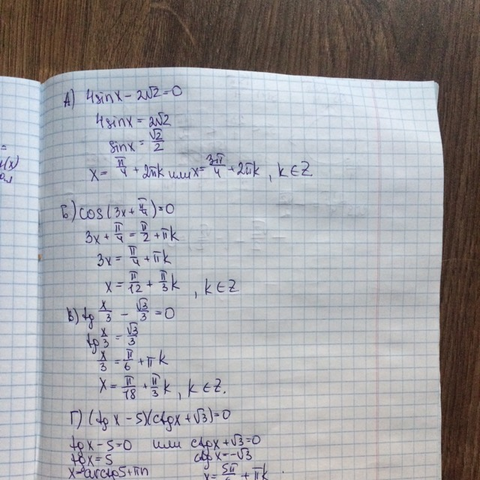 А) 4sinx - 2√2 = 0
4sinx = 2√2
sinx = √2/2
x = π/4 + 2πk или x = 3π/4 + 2πk , k ∈ Z
Б) cos(3x + π/4) = 0
3x + π/4 = π/2 + πk
3x = π/4 + πk
x = π/12 + π/3 k , k ∈ Z
В) tg x/3 - √3/3 = 0
tg x/3 = √3/3
x/3 = π/6 + πk
x = π/18 + π/3 k, k ∈ Z.
Г) (tgx - 5)(ctgx + √3) = 0
tgx - 5 = 0 или ctgx + √3 = 0
tgx = 5 ctgx = -√3
x = arctg5 + πn x = 5π/6 + πk